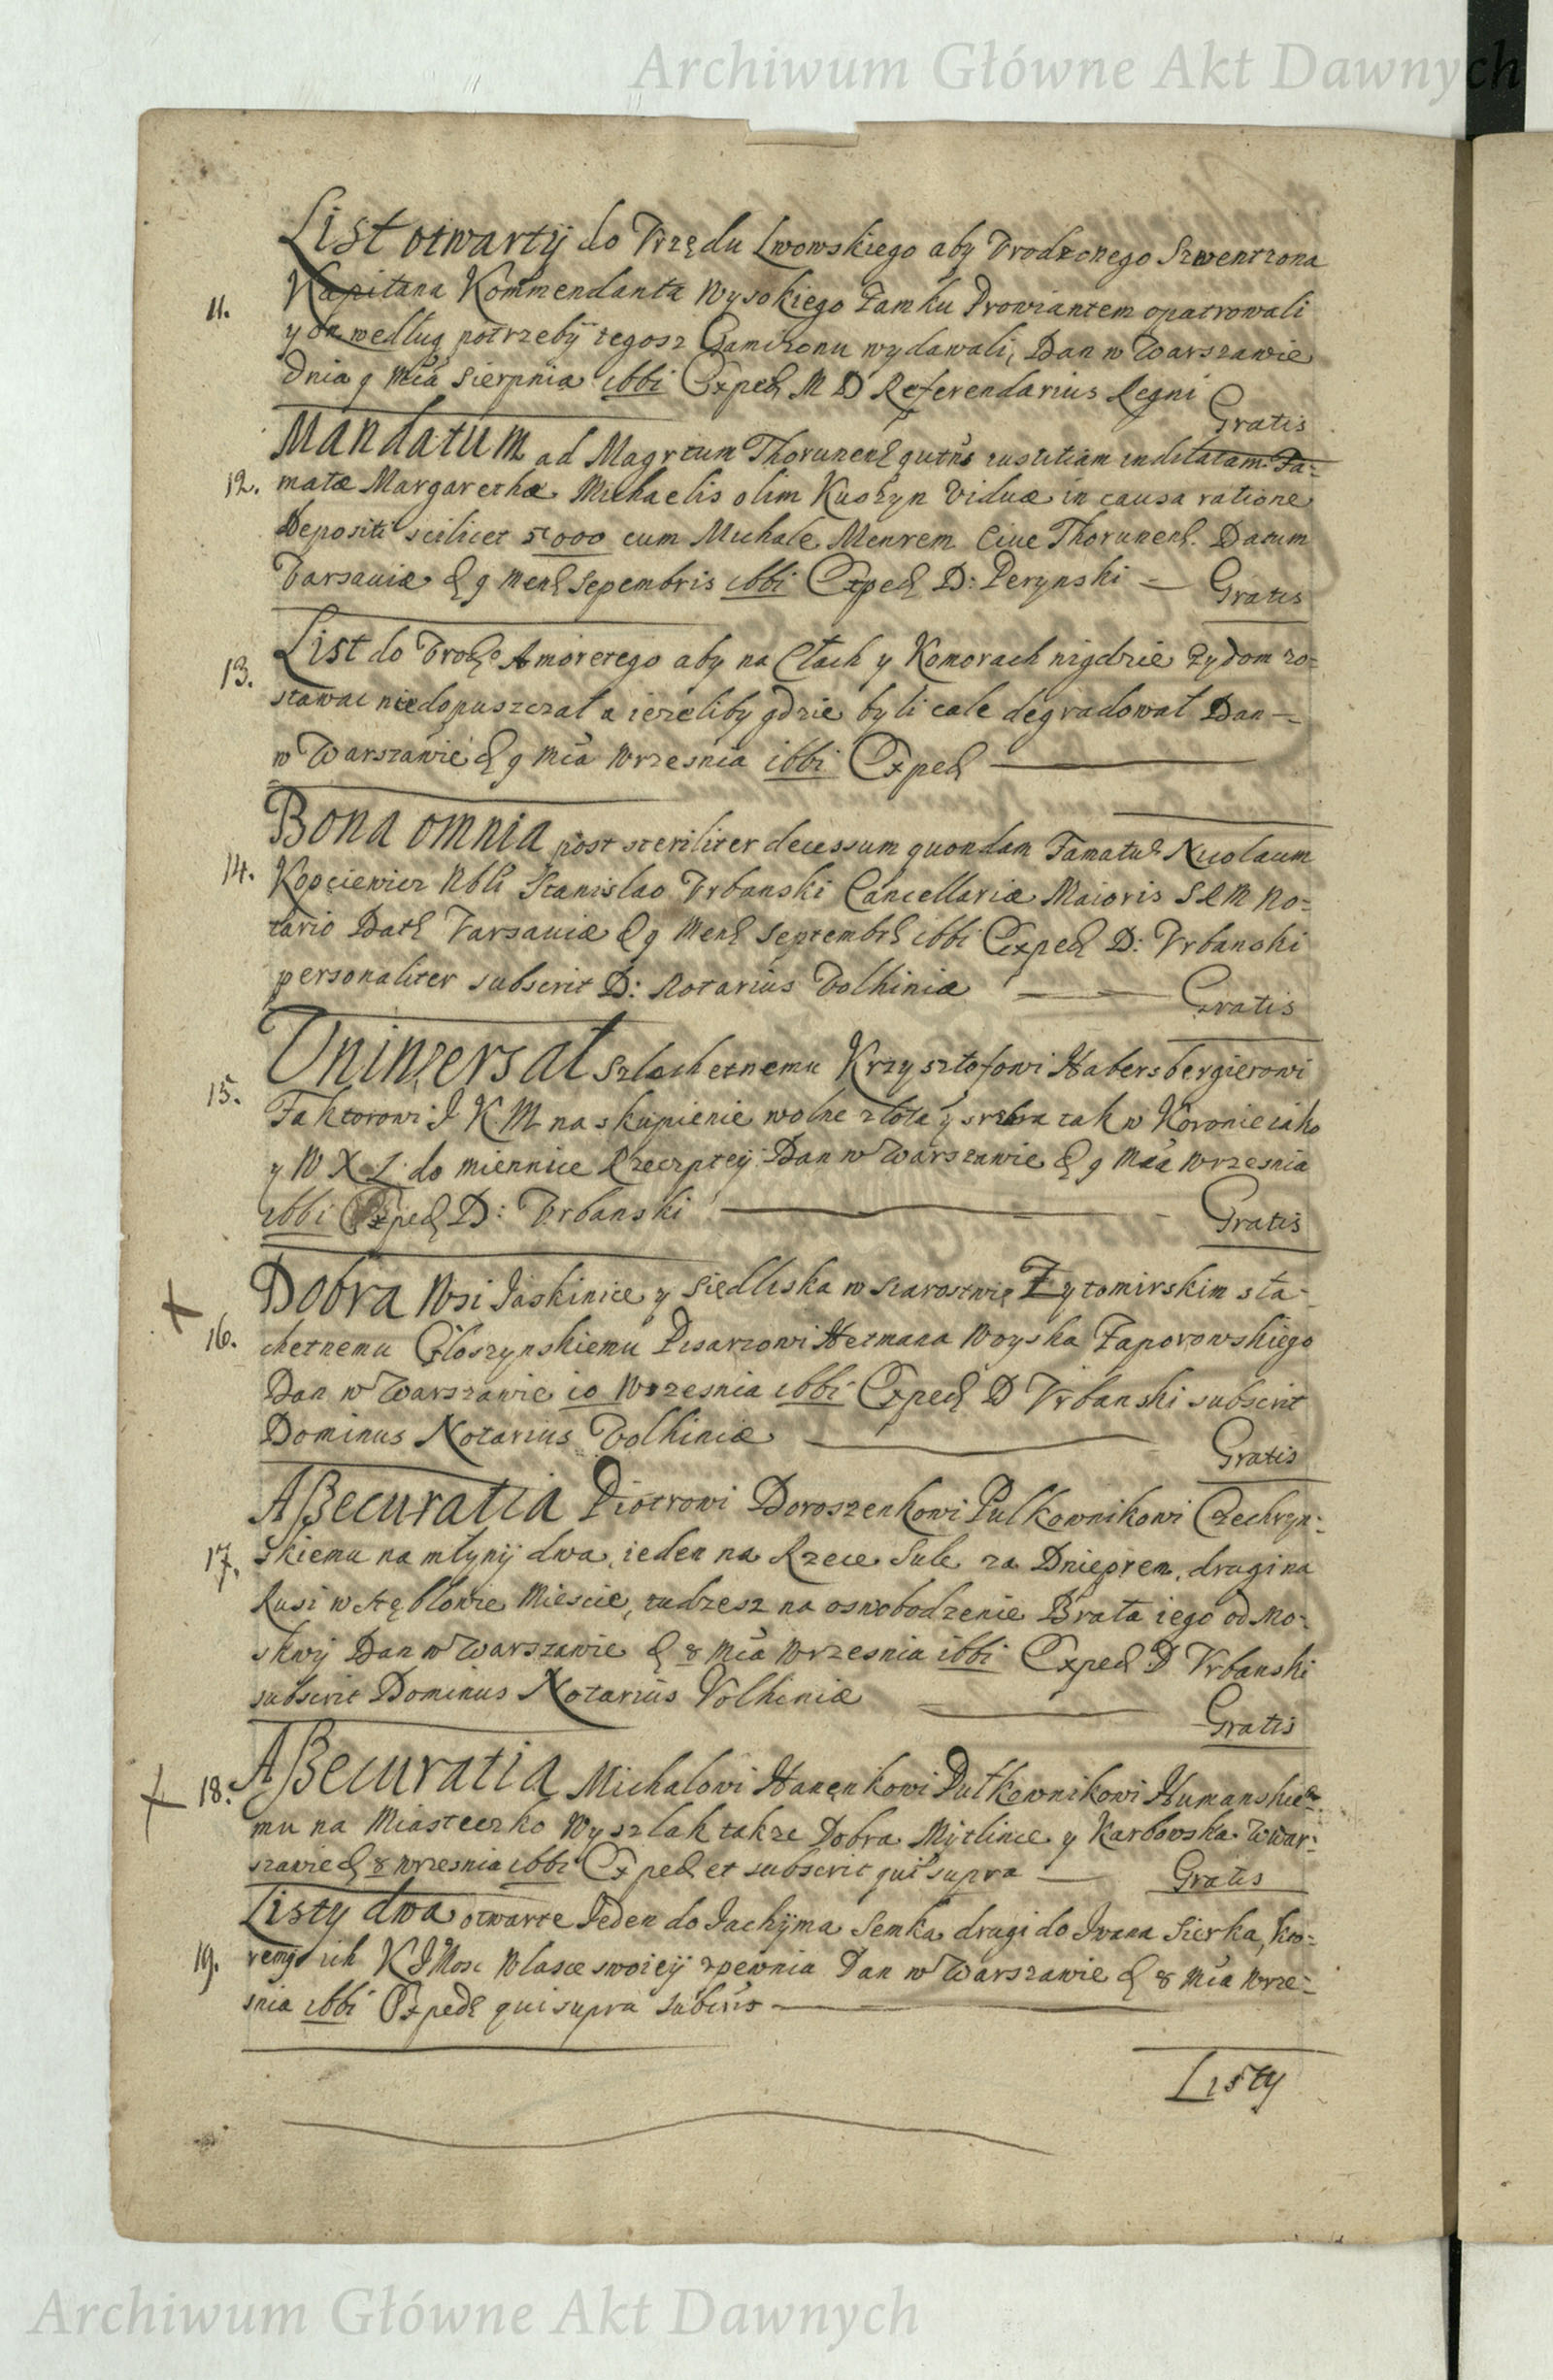 Archiwum Główne Akt Dawnych
List otwartÿ do Vrzędu Lwowskiego aby Vrodzonego Szwentzona
11. Kapitana Kommendanta Wysokiego Zamku Prowiantem opatrowali
y według potrzebÿ tegosz Garnizonu wydawali, Dan w Warszawie
Dnia 9 Mca Sierpnia ibbi Exped M D Referendarius Regni
Gratis
Mandatum ad Magrtum Thorunens iustitiam Fa=
12. matæ Margarethæ Michaelis olim Viduæ in causa ratione
Depositi scilicet 5000 cum Michale Ciue Thorunens. Datum
Varsauiæ d 9 Mens Sepembris ibbi Exped D: Perynski — Gratis
List do Amoretego aby na Cłach y Komorach nigdzie Zydom zo=
13. stawac niedopuszczał a iezeliby gdzie byli cale degradował Dan —
w Warszawie d 9 Mca Wrzesnia ibbi Exped
Bona omnia post steriliter decessum quondam Famatus Nicolaum
14. Kopciewicz Nbli Stanislao Vrbanski Cancellariæ Maioris S R M No=
tario Dats Varsauiæ d 9 Mens Septembris ibbi Exped D: Vrbanski
personaliter subscrit D: Notarius Volhiniæ — Gratis
Uniwersał Szlachetnemu Krzysztofowi Habersbergierowi
15. Faktorowi J K M na skupienie wolne złota y srebra tak w Koronie iako
y W X L do miennice Rzeczptey Dan w Warszawie d 9 Mca Wrzesnia
ibbi Exped D: Vrbanski — Gratis
Dobra Wsi Jaskinice y Siedliska w Starostwie Zytomirskim sla=
16. chetnemu Głoszynskiemu Pisarzowi Hetmana Woyska Zaporowskiego
Dan w Warszawie 10 Wrzesnia ibbi Exped D Vrbanski subscrit
Dominus Notarius Volhiniæ — Gratis
Assecuratia Piotrowi Doroszenkowi Pulkownikowi Czechryn=
17. skiemu na młynÿ dwa, ieden na Rzece Sule za Dnieprem, drugi na
Rusi w Stęblowie Miescie, tudzesz na oswobodzenie Brata iego od Mo=
skwÿ Dan w Warszawie d 8 Mca Wrzesnia ibbi Exped D Vrbanski
subscrit Dominus Notarius Volhiniæ — Gratis
18. Assecuratia Michałowi Hanenkowi Pułkownikowi Humanskie
mu na Miasteczko Wyszlak takze Dobra Mÿtlince y Karbowska War=
szawie d 8 wrzesnia ibbi Exped et subscrit qui supra — Gratis
Listy dwa otwarte Jeden do Jachÿma Semka drugi do Iwana Sierka, kto=
19. remÿ ich K J Mosc W lasce swoieÿ zpewnia Dan w Warszawie d 8 Mca Wrze=
snia ibbi Exped qui supra
Listy
Archiwum Główne Akt Dawnych